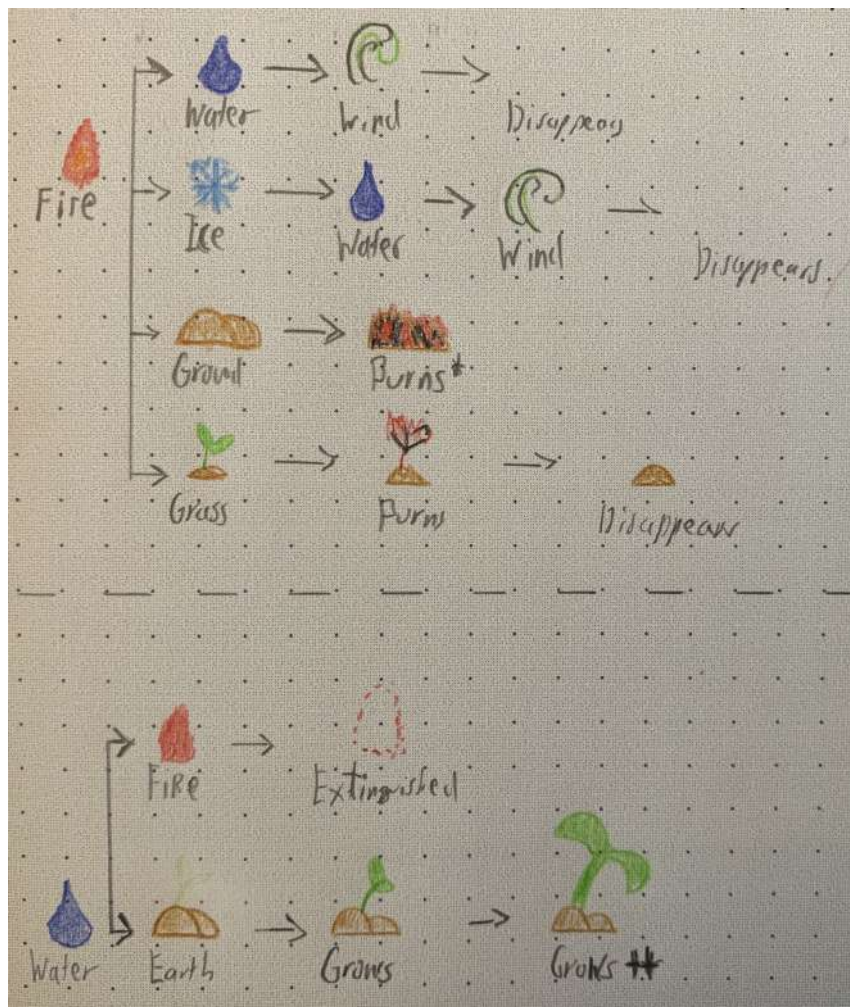 Water
Wind
Disappears
Fire
Ice
Water
Wind
Disappears.
Ground
Burns*
Grass
Burns
Disappears
FiRe
Extinguished
Water
Earth
Grows
Grows #